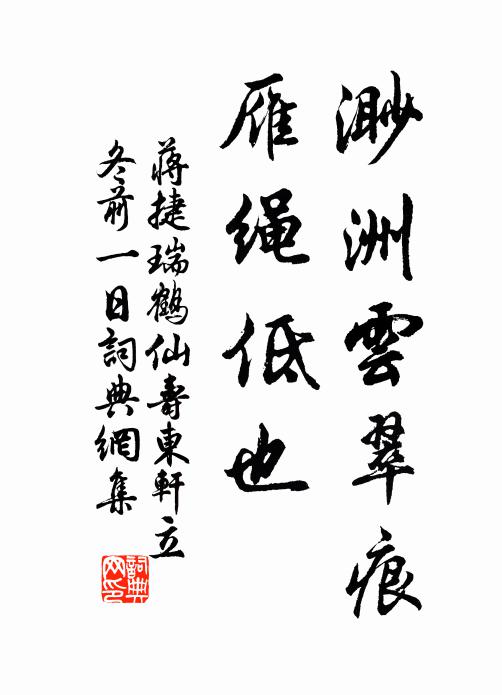 渺洲雲翠痕
雁绳低也
蒋捷瑞鶴仙壽東軒立
冬前一日詞典網集
詞典网印